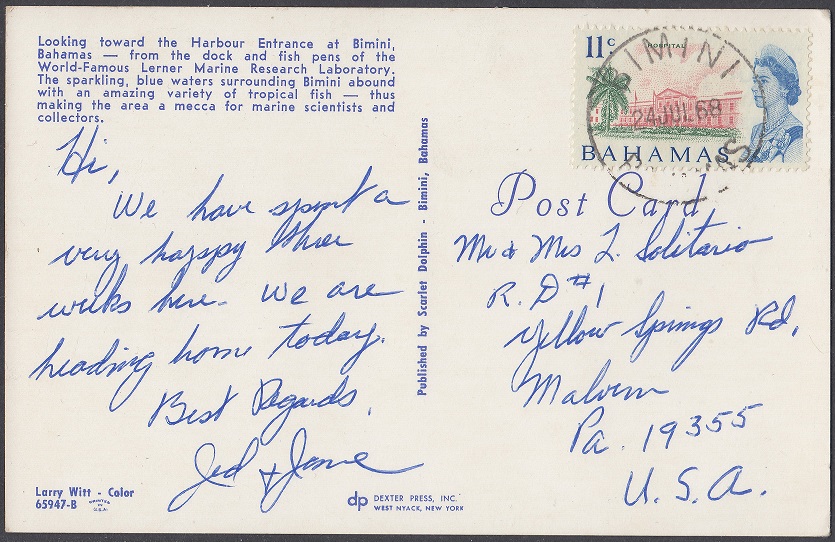 Looking toward the Harbour Entrance at Bimini,
Bahamas — from the dock and fish pens of the
World-Famous Lerner Marine Research Laboratory.
The sparkling, blue waters surrounding Bimini abound
with an amazing variety of tropical fish — thus
making the area a mecca for marine scientists and
collectors.
Hi,
We have spent a
very happy three
weeks here. We are
heading home today.
Best Regards,
Jed + Jane
Larry Witt - Color
65947-B
PRINTED
IN
U.S.A.
dp DEXTER PRESS, INC.
WEST NYACK, NEW YORK
Published by Scarlet Dolphin - Bimini, Bahamas
11c
HOSPITAL
BAHAMAS
BIMINI
24 JUL 68
Post Card
Mr & Mrs L. Solitario
R. D #1
Yellow Springs Rd,
Malvern
Pa. 19355
U.S.A.